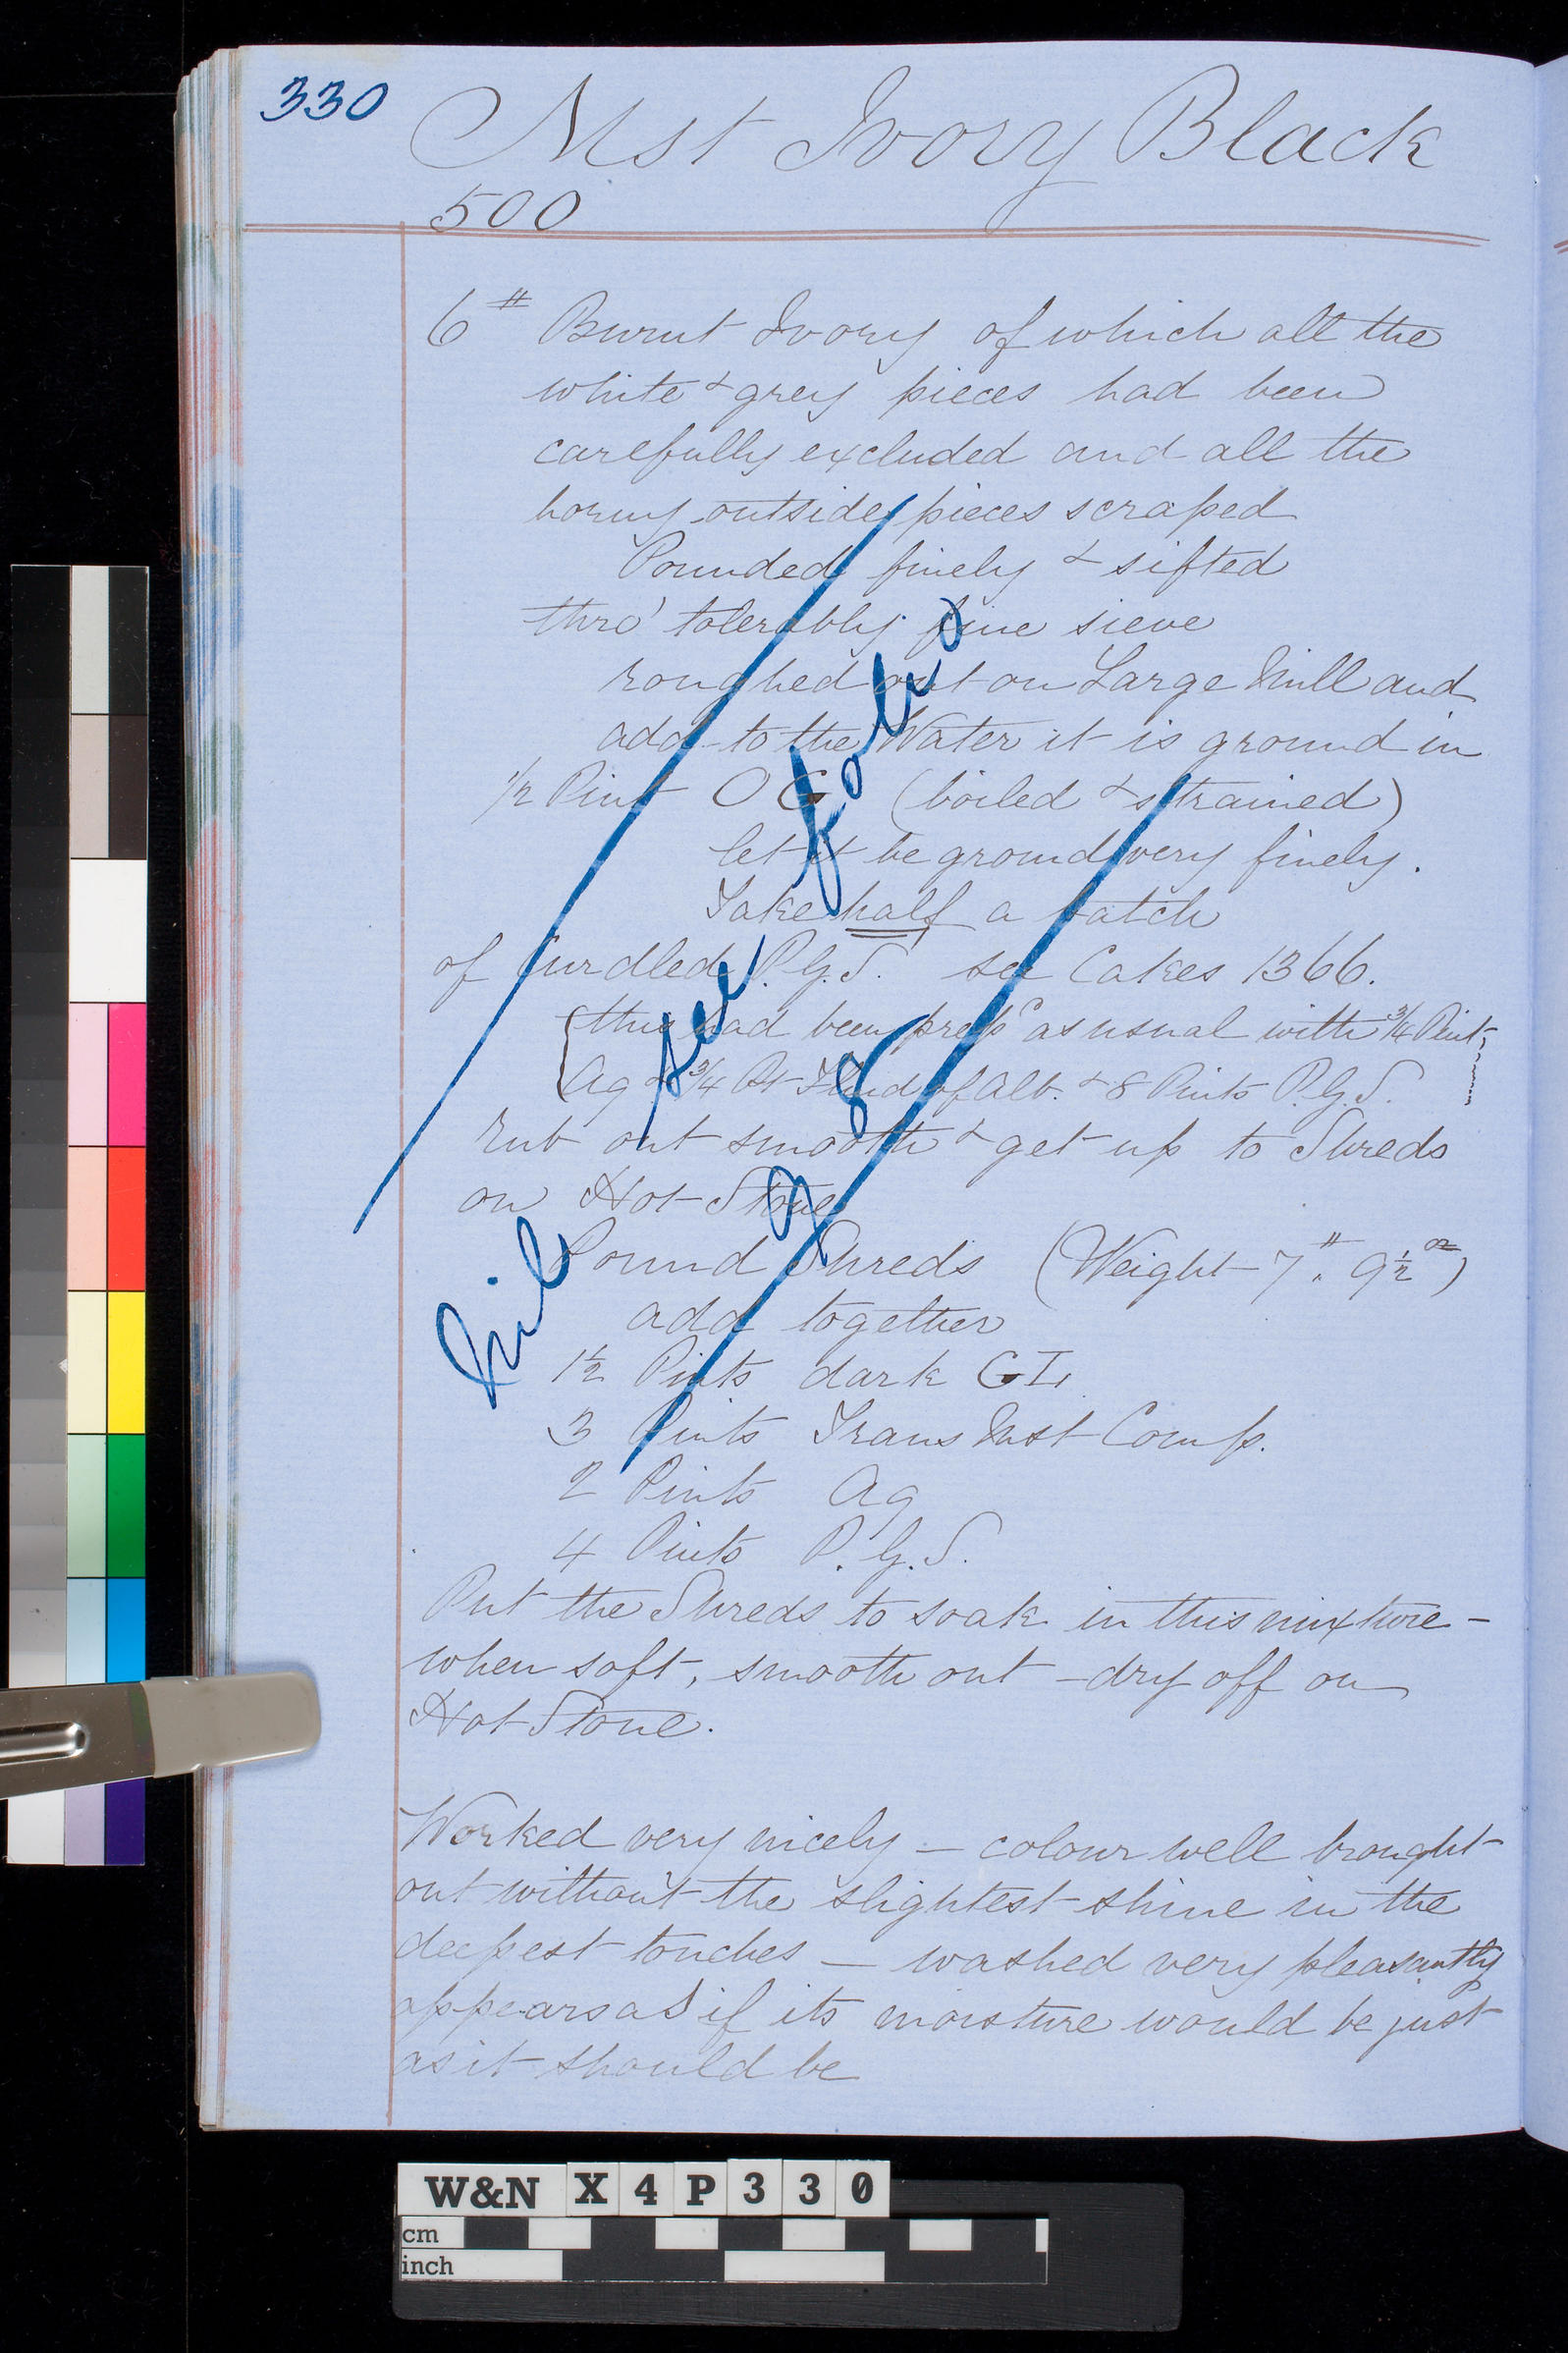 330
Mst Ivory Black
500
6 # Burnt Ivory of which all the
white & grey pieces had been
carefully excluded and all the
horny outside pieces scraped
Pounded finely & sifted
thro' tolerably fine sieve
roughed out on Large Mill and
add to the Water it is ground in
1/2 Pint O G (boiled & strained)
let it be ground very finely.
Take half a batch
of Curdled P.G.S. see Cakes 1366.
(this had been prepd as usual with 3/4 Pint
Ag & 3/4 Pt Fluid of Alb. & 8 Pints P.G.S.
rub out smooth & get up to Shreds
on Hot Stone
Pound Shreds (Weight 7 # . 9 1/2 oz)
add together
1 1/2 Pints dark GL
3 Pints Trans Mst Comp.
2 Pints Ag
4 Pints P.G.S.
Put the Shreds to soak in this mixture -
when soft, smooth out - dry off on
Hot Stone.
Worked very nicely - colour well brought
out without the slightest shine in the
deepest touches - washed very pleasantly
appears as if its moisture would be just
as it should be
see folio
W&N X4P330
cm
inch